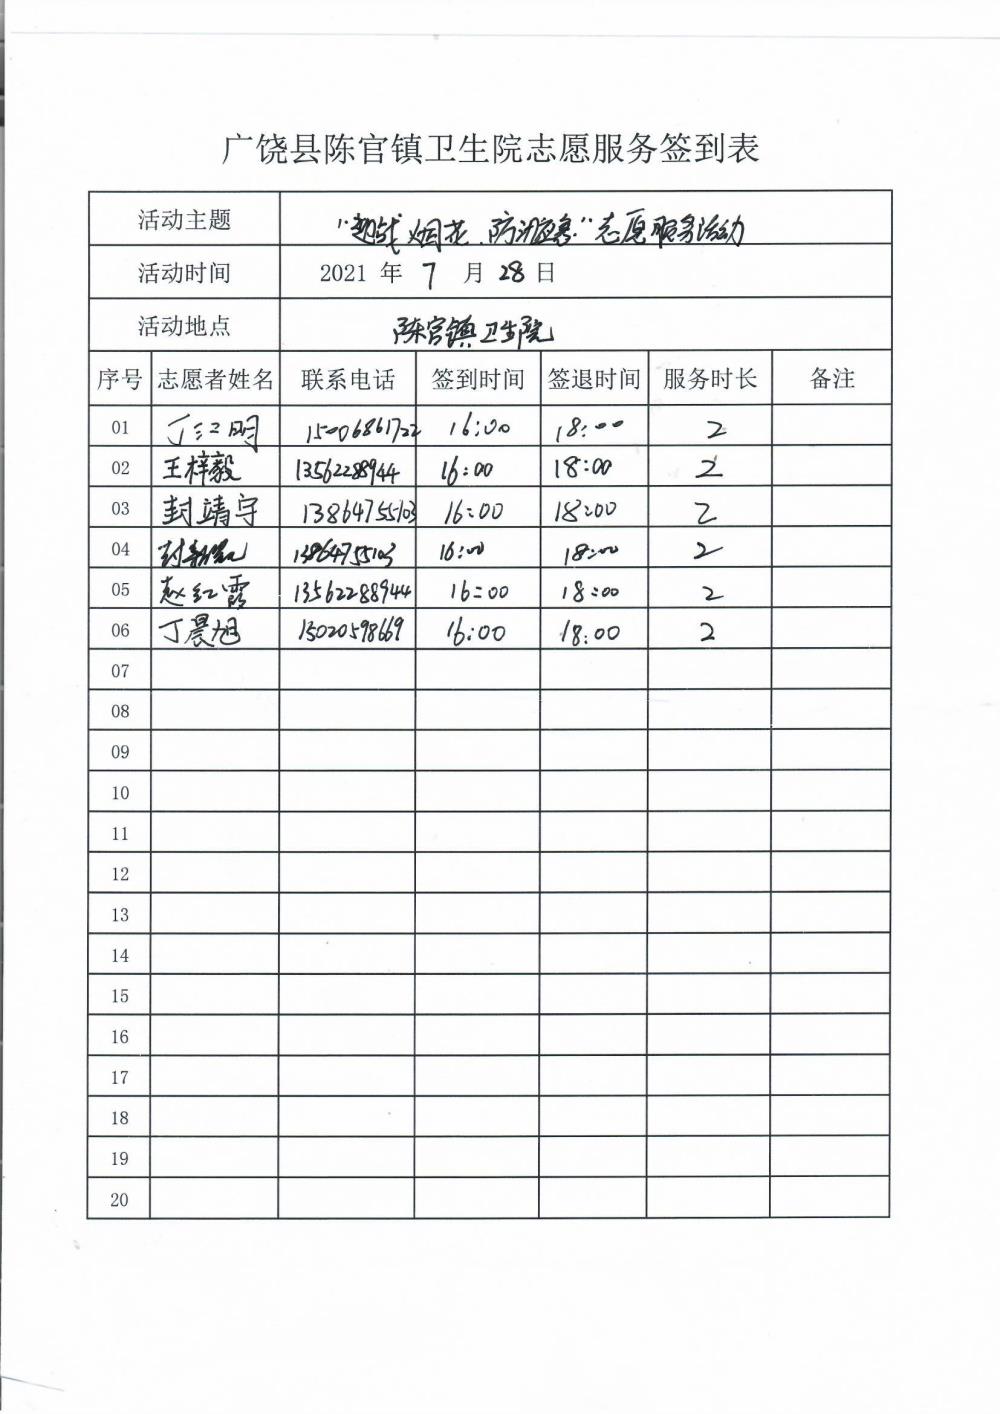 广饶县陈官镇卫生院志愿服务签到表
活动主题 “迎战烟花、防汛应急”志愿服务活动
活动时间 2021 年 7 月 28 日
活动地点 陈官镇卫生院
序号 志愿者姓名 联系电话 签到时间 签退时间 服务时长 备注
01 丁红明 15006861722 16:00 18:00 2
02 王梓毅 13562288944 16:00 18:00 2
03 封靖宇 13864755103 16:00 18:00 2
04 封 13864755103 16:00 18:00 2
05 赵红霞 13562288944 16:00 18:00 2
06 丁晨旭 15020598669 16:00 18:00 2
07
08
09
10
11
12
13
14
15
16
17
18
19
20